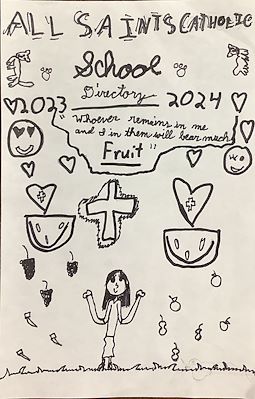 ALL SAINTS CATHOLIC
School
Directory
2023 2024
"Whoever remains in me
and I in them will bear much
Fruit"